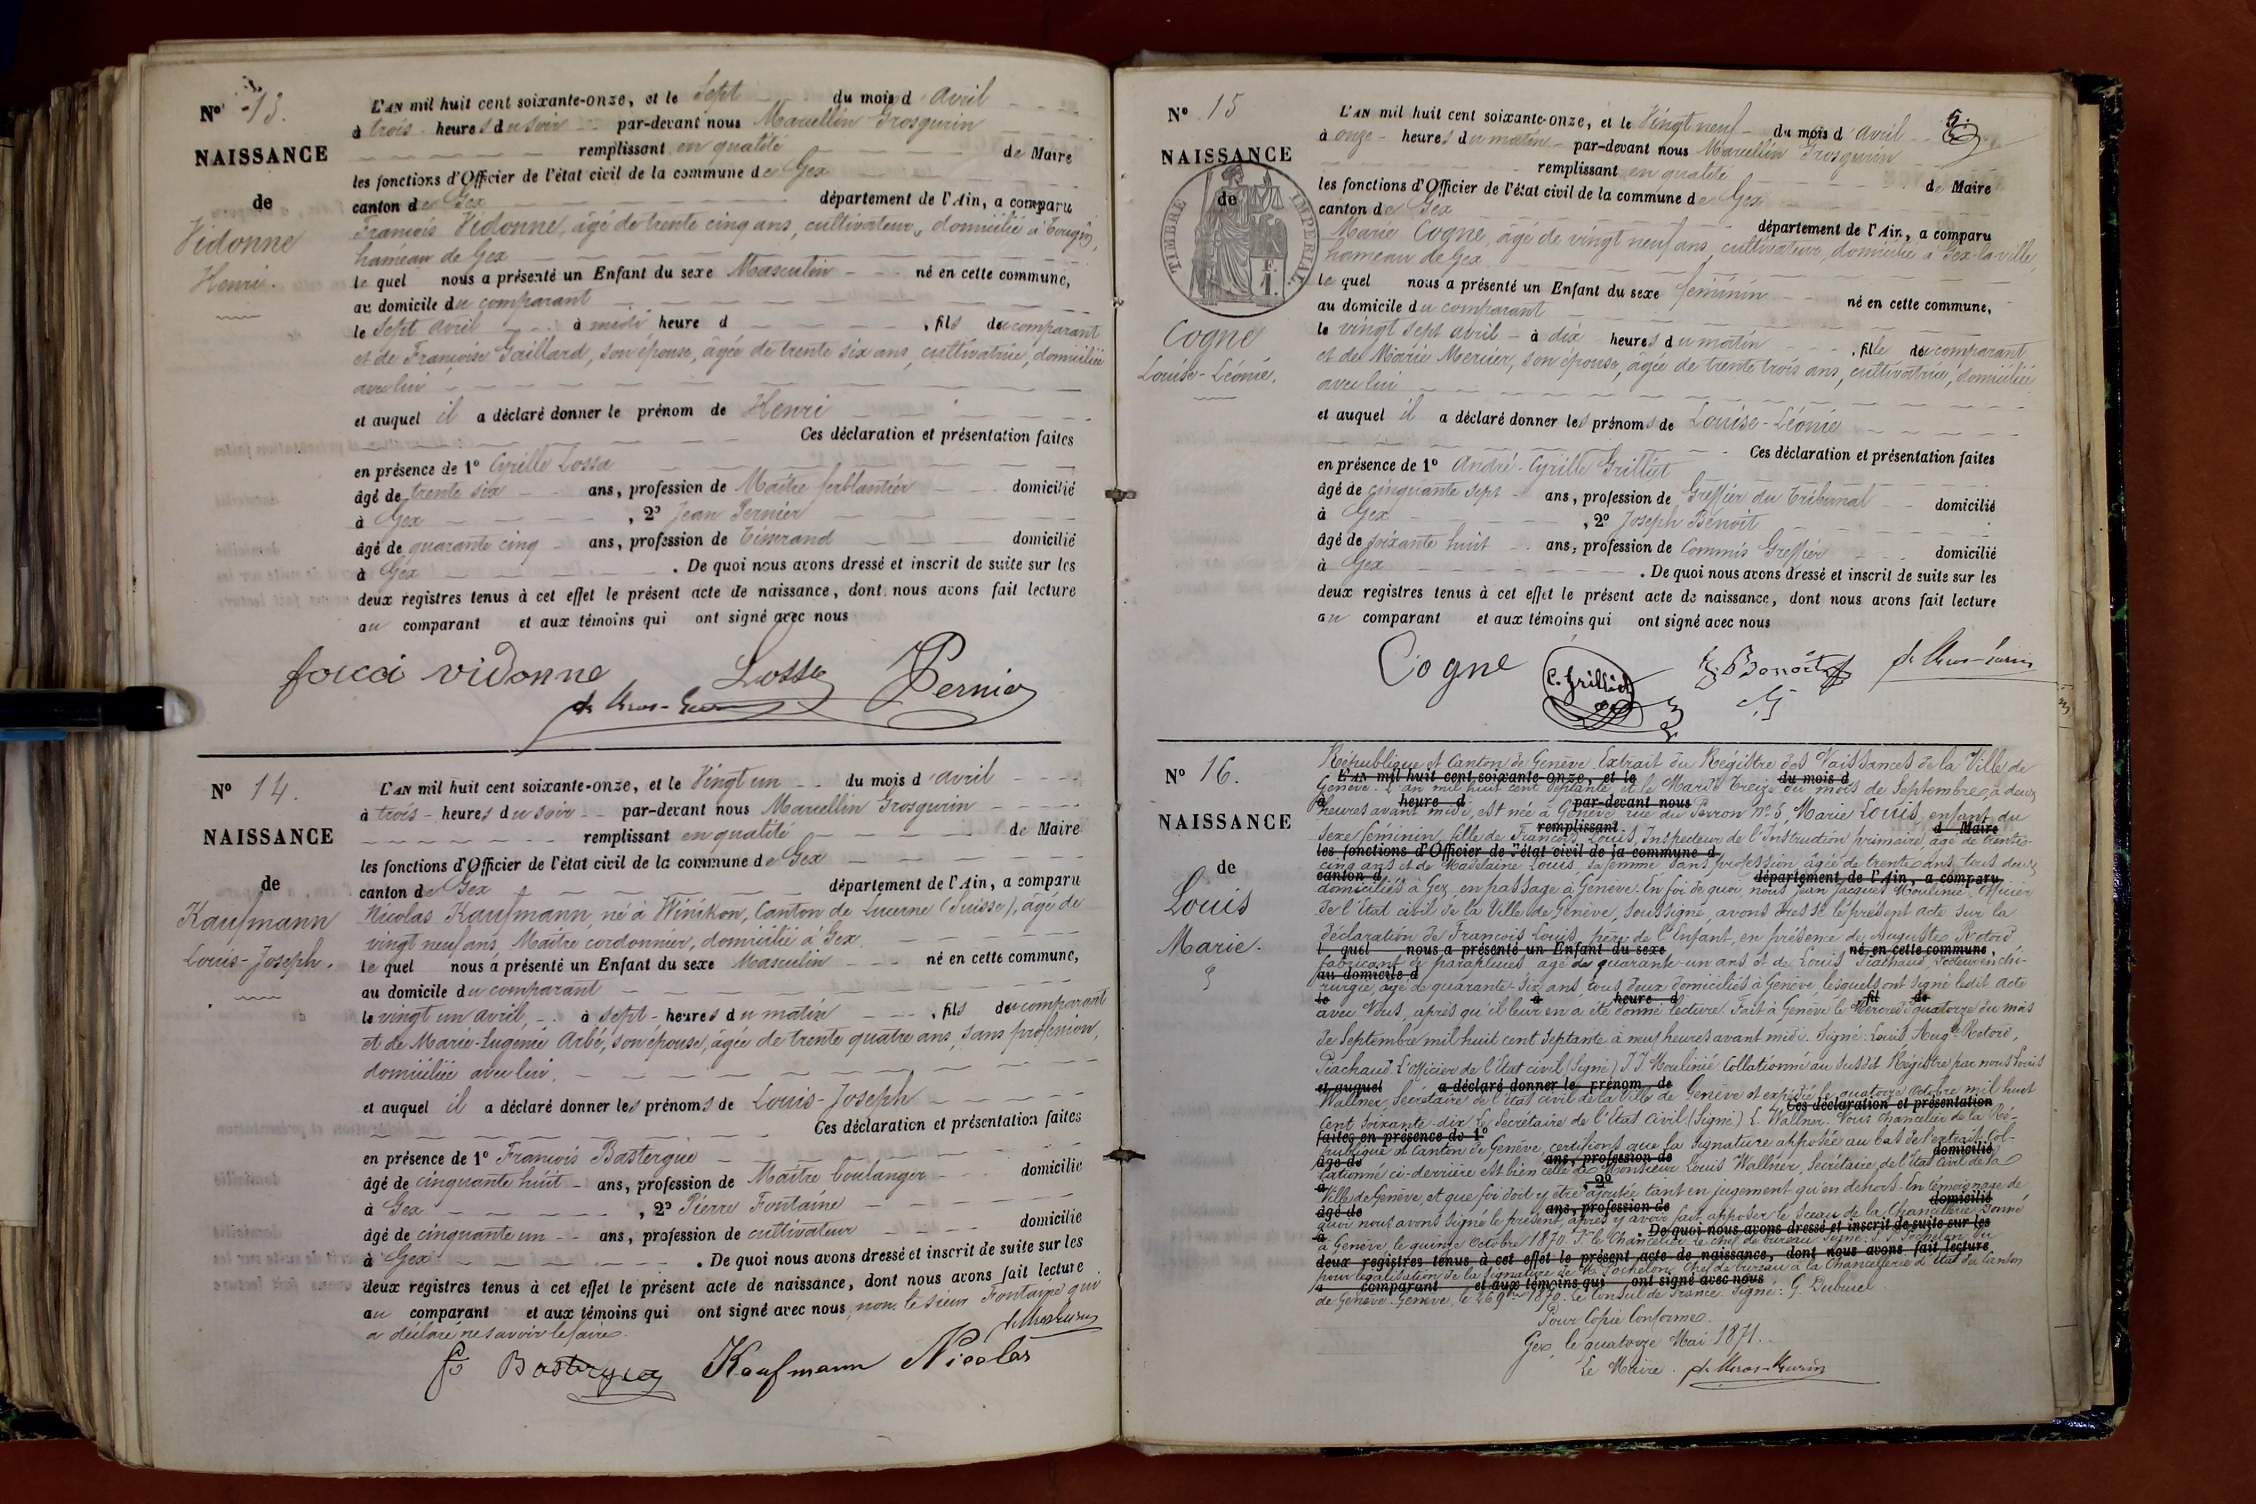 N° 13.
NAISSANCE
de
Vidonne
Henri.
L'AN mil huit cent soixante-onze, et le Sept du mois d'avril
à trois heures du soir par-devant nous Marcellin Grosgurin
remplissant en qualité de Maire
les fonctions d'Officier de l'état civil de la commune de Gex
canton de Gex département de l'Ain, a comparu
François Vidonne, âgé de trente cinq ans, cultivateur, domicilié à Tougin,
hameau de Gex
le quel nous a présenté un Enfant du sexe Masculin né en cette commune,
au domicile du comparant
le Sept avril à midi heure d , fils du comparant
et de Françoise Gaillard, son épouse, âgée de trente six ans, cultivatrice, domiciliée
avec lui
et auquel il a déclaré donner le prénom de Henri
Ces déclaration et présentation faites
en présence de 1° Cyrille Lossa
âgé de trente six ans, profession de Maître ferblantier domicilié
à Gex , 2° Jean Pernier
âgé de quarante cinq ans, profession de Tisserand domicilié
à Gex . De quoi nous avons dressé et inscrit de suite sur les
deux registres tenus à cet effet le présent acte de naissance, dont nous avons fait lecture
au comparant et aux témoins qui ont signé avec nous
vidonne Lossa Pernier
N° 14.
NAISSANCE
de
Kaufmann
Louis-Joseph.
L'AN mil huit cent soixante-onze, et le Vingt un du mois d'avril
à trois heures du soir par-devant nous Marcellin Grosgurin
remplissant en qualité de Maire
les fonctions d'Officier de l'état civil de la commune de Gex
canton de Gex département de l'Ain, a comparu
Nicolas Kaufmann, né à Winikon, Canton de Lucerne (Suisse), âgé de
vingt neuf ans, Maître cordonnier, domicilié à Gex.
le quel nous a présenté un Enfant du sexe Masculin né en cette commune,
au domicile du comparant
le vingt un avril, à sept heures du matin , fils du comparant
et de Marie-Eugénie Arbé, son épouse, âgée de trente quatre ans, sans profession,
domiciliée avec lui.
et auquel il a déclaré donner les prénoms de Louis-Joseph
Ces déclaration et présentation faites
en présence de 1° François Bastergue
âgé de cinquante huit ans, profession de Maître boulanger domicilié
à Gex , 2° Pierre Fontaine
âgé de cinquante un ans, profession de cultivateur domicilié
à Gex . De quoi nous avons dressé et inscrit de suite sur les
deux registres tenus à cet effet le présent acte de naissance, dont nous avons fait lecture
au comparant et aux témoins qui ont signé avec nous, non le sieur Fontaine qui
a déclaré ne savoir le faire.
Kaufmann Nicolas
N° 15
NAISSANCE
de
TIMBRE IMPERIAL
Cogne
Louise-Léonie.
L'AN mil huit cent soixante-onze, et le Vingt neuf du mois d'avril
à onze heures du matin par-devant nous Marcellin Grosgurin
remplissant en qualité de Maire
les fonctions d'Officier de l'état civil de la commune de Gex
canton de Gex département de l'Ain, a comparu
Marie Cogne, âgé de vingt neuf ans, cultivateur, domicilié à Gex-la-ville,
hameau de Gex
le quel nous a présenté un Enfant du sexe féminin né en cette commune,
au domicile du comparant
le vingt sept avril à dix heures du matin , fille du comparant
et de Marie Mercier, son épouse, âgée de trente trois ans, cultivatrice, domiciliée
avec lui
et auquel il a déclaré donner les prénoms de Louise-Léonie
Ces déclaration et présentation faites
en présence de 1° André-Cyrille Grilliet
âgé de cinquante sept ans, profession de Greffier du Tribunal domicilié
à Gex , 2° Joseph Benoit
âgé de soixante huit ans, profession de Commis Greffier domicilié
à Gex . De quoi nous avons dressé et inscrit de suite sur les
deux registres tenus à cet effet le présent acte de naissance, dont nous avons fait lecture
au comparant et aux témoins qui ont signé avec nous
Cogne C. Grilliet Benoit
N° 16.
NAISSANCE
de
Louis
Marie.
République et Canton de Genève. Extrait du Régistre des Naissances de la Ville de
Genève. L'an mil huit cent septante et le Mardi Treize du mois de Septembre, à deux
heures avant midi, est née à Genève rue du Perron n° 5, Marie Louis, enfant du
sexe féminin, fille de François Louis, Inspecteur de l'Instruction primaire, âgé de trente-
cinq ans et de Madelaine Louis, sa femme sans profession, âgée de trente ans, tous deux
domiciliés à Gex, en passage à Genève. En foi de quoi, nous Jean Jacques Moulinié, Officier
de l'Etat civil de la Ville de Genève, soussigné, avons dressé le présent acte sur la
déclaration de François Louis, père de l'Enfant, en présence de Auguste Redord
fabricant de parapluies âgé de quarante-un ans et de Louis Piachaud, Docteur en chi-
rurgie, âgé de quarante-six ans, tous deux domiciliés à Genève, lesquels ont signé ledit acte
avec Nous, après qu'il leur en a été donné lecture. Fait à Genève le Mercredi quatorze du mois
de Septembre mil huit cent septante à neuf heures avant midi. Signé: Louis, Augte Redord,
Piachaud. L'Officier de l'Etat civil (Signé) J J Moulinié. Collationné au susdit Régistre par nous Louis
Wallner, Secrétaire de l'état civil de la Ville de Genève et expédié le quatorze Octobre mil huit
cent soixante-dix. Le Secrétaire de l'Etat Civil (Signé) L. Wallner. Nous Chancelier de la Ré-
publique et Canton de Genève, certifions que la signature apposée au bas de l'extrait Col-
lationné ci-derrière est bien celle de Monsieur Louis Wallner, Secrétaire de l'état Civil de la
Ville de Genève, et que foi doit y être ajoutée tant en jugement qu'en dehors. En témoignage de
quoi nous avons signé le présent, après y avoir fait apposer le Sceau de la Chancellerie. Donné
à Genève, le quinze Octobre 1870. Pr le Chancelier le chef de bureau Signé: Vu
pour légalisation de la signature de Mr Chef de bureau à la Chancellerie d'Etat du Canton
de Genève. Genève, le 26 9bre 1870. Le Consul de France. Signé: G. Dubruel
Pour Copie Conforme.
Gex, le quatorze Mai 1871.
Le Maire.